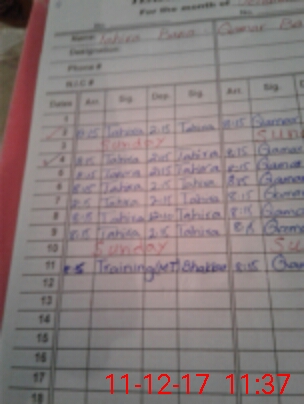 For the month of
Name Tahira Bano Qamar Ba
Designation
Phone #
N.I.C #
Dates Arr. Sig. Dep. Sig. Arr. Sig.
1
2 8:15 Tahira 2:15 Tahira 8:15 Qamar
3 Sunday Sun
4 8:15 Tahira 2:15 Tahira 8:15 Qamar
5 8:15 Tahira 2:15 Tahira 8:15 Qamar
6 8:15 Tahira 2:15 Tahira 8:15 Qamar
7 8:15 Tahira 2:15 Tahira 8:15 Qamar
8 8:15 Tahira Tahira 8:15 Qamar
9 8:15 Tahira 2:15 Tahira Qamar
10 Sunday Su
11 8:15 Training 8:15 Qam
12
13
14
15
16
17
18
11-12-17 11:37